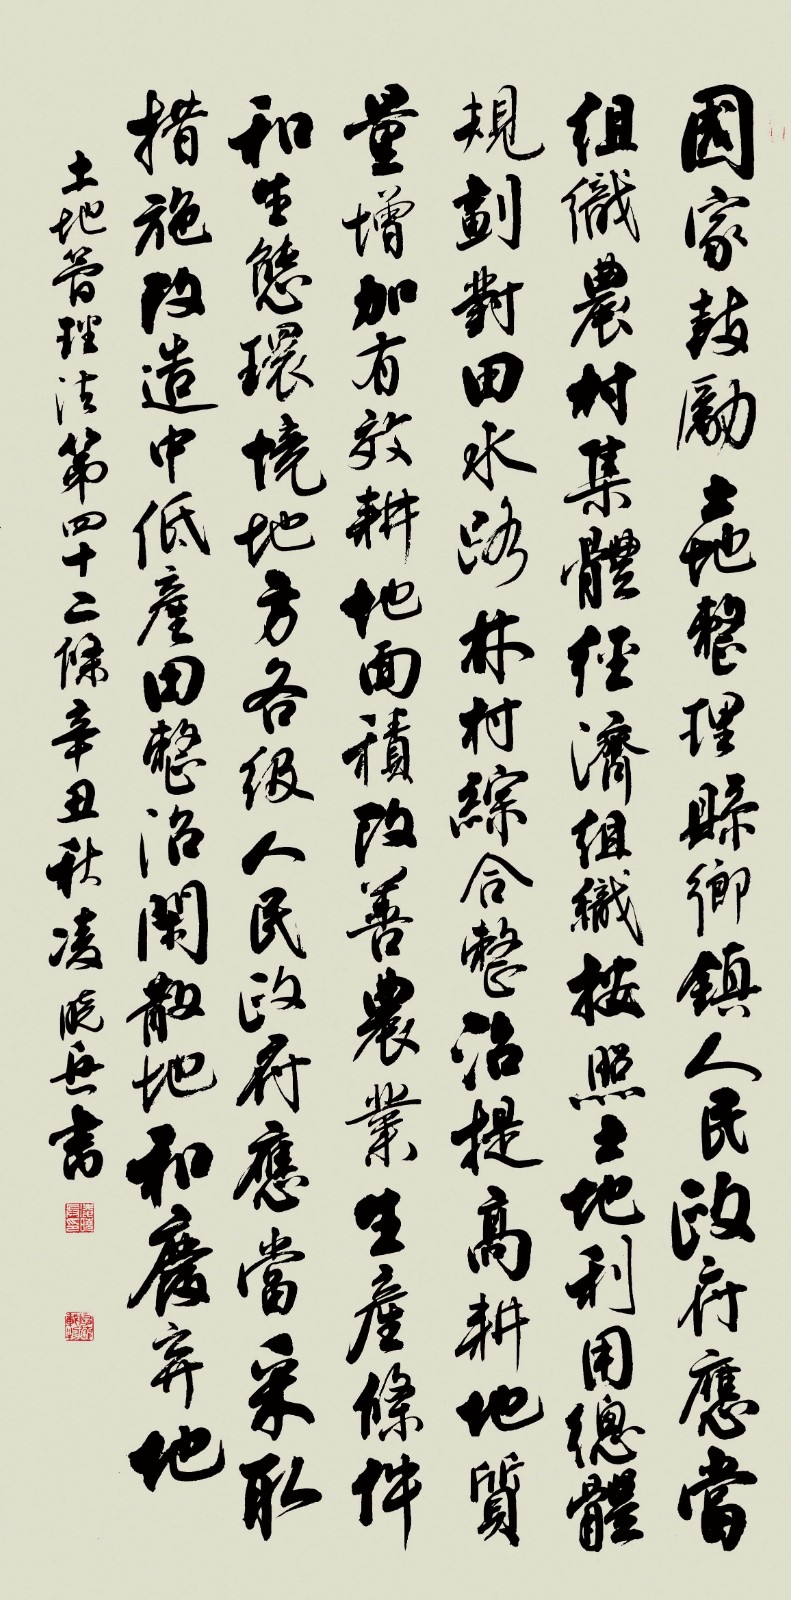 國家鼓勵土地整理縣鄉鎮人民政府應當
組織農村集體經濟組織按照土地利用總體
規劃對田水路林村綜合整治提高耕地質
量增加有效耕地面積改善農業生產條件
和生態環境地方各級人民政府應當采取
措施改造中低產田整治閑散地和廢弃地
土地管理法第四十二條辛丑秋凌曉書